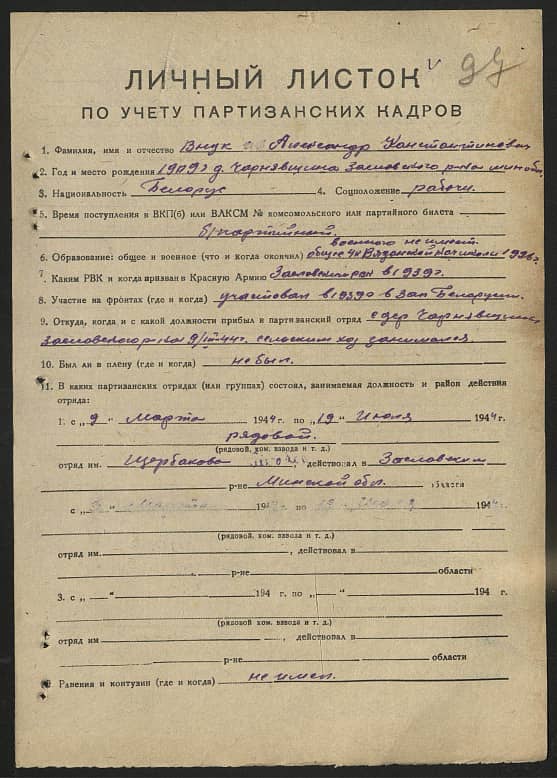 99
ЛИЧНЫЙ ЛИСТОК
ПО УЧЕТУ ПАРТИЗАНСКИХ КАДРОВ
1. Фамилия, имя и отчество Внук Александр Константинович
2. Год и место рождения 1909 г д. Чарнявщина Заславского р-на мин обл.
3. Национальность Белорус 4. Соцположение рабочи.
5. Время поступления в ВКП(б) или ВЛКСМ № комсомольского или партийного билета
б/партийный.
военного не имеет.
6. Образование: общее и военное (что и когда окончил) общее 4 кл нач школы 1926 г
7. Каким РВК и когда призван в Красную Армию Заславским рвк в 1939 г.
8. Участие на фронтах (где и когда) участвовал в 1939 в Зап Белорусии.
9. Откуда, когда и с какой должности прибыл в партизанский отряд с дер Чарнявщина
Заславского р-на 9/III-44 г. селеским хоз занимался.
10. Был ли в плену (где и когда) не был.
11. В каких партизанских отрядах (или группах) состоял, занимаемая должность и район действия
отряда:
1. с „9" Марта 1944 г. по „19" Июля 1944 г.
рядовой.
(рядовой, ком. взвода и т. д.)
отряд им. Щербакова, действовал в Заславским
р-не Минской обл. области
с 194 г. по 194 г.
(рядовой, ком. взвода и т. д.)
отряд им. , действовал в
р-не области
3. с „—" 194 г. по „—" 194 г.
(рядовой, ком. взвода и т. д.)
отряд им , действовал в
р-не области
Ранения и контузии (где и когда) не имел.